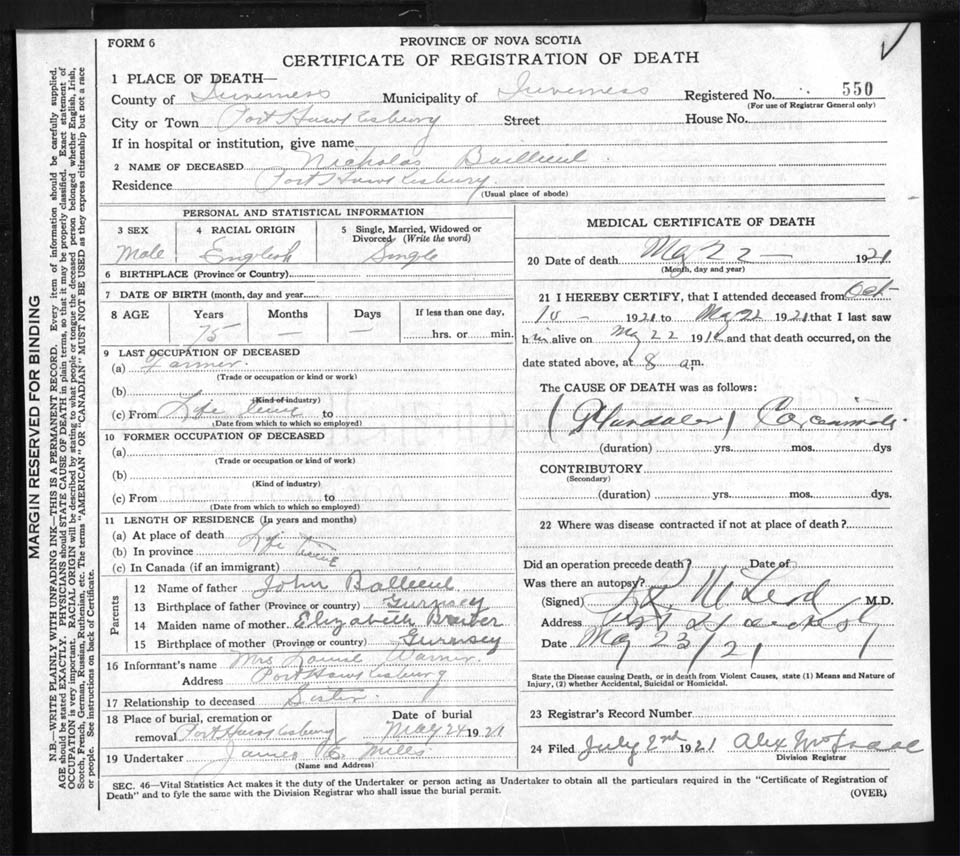 FORM 6
PROVINCE OF NOVA SCOTIA
CERTIFICATE OF REGISTRATION OF DEATH
1 PLACE OF DEATH—
County of Inverness Municipality of Inverness Registered No. 550
(For use of Registrar General only)
City or Town Port Hawkesbury Street House No.
If in hospital or institution, give name
2 NAME OF DECEASED Nicholas Bailleul
Residence Port Hawkesbury
(Usual place of abode)
PERSONAL AND STATISTICAL INFORMATION
3 SEX 4 RACIAL ORIGIN 5 Single, Married, Widowed or Divorced (Write the word)
Male English Single
6 BIRTHPLACE (Province or Country)
7 DATE OF BIRTH (month, day and year
8 AGE Years Months Days If less than one day,
75 — — hrs. or min.
9 LAST OCCUPATION OF DECEASED
(a) Farmer
(Trade or occupation or kind or work)
(b)
(Kind of industry)
(c) From Life time to
(Date from which to which so employed)
10 FORMER OCCUPATION OF DECEASED
(a)
(Trade or occupation or kind of work)
(b)
(Kind of industry)
(c) From to
(Date from which to which so employed)
11 LENGTH OF RESIDENCE (In years and months)
(a) At place of death Life Time
(b) In province
(c) In Canada (if an immigrant)
Parents
12 Name of father John Balleul
13 Birthplace of father (Province or country) Gurnsey
14 Maiden name of mother Elizabeth
15 Birthplace of mother (Province or country) Gurnsey
16 Informant's name Mrs Louise Warner.
Address Port Hawkesbury
17 Relationship to deceased Sister
18 Place of burial, cremation or removal Port Hawkesbury Date of burial May 24 1921
19 Undertaker James E. Mills
(Name and Address)
MEDICAL CERTIFICATE OF DEATH
20 Date of death May 22 — 1921
(Month, day and year)
21 I HEREBY CERTIFY, that I attended deceased from Oct
10 - 1920 to May 22 1921 that I last saw
him alive on May 22 191 and that death occurred, on the
date stated above, at 8 a.m.
The CAUSE OF DEATH was as follows:
(Glandular) Carcinoma
(duration) yrs. mos. dys
CONTRIBUTORY
(Secondary)
(duration) yrs. mos. dys.
22 Where was disease contracted if not at place of death?
Did an operation precede death? Date of
Was there an autopsy?
(Signed) McLeod M.D.
Address Port Hawkesbury
Date May 23/21
State the Disease causing Death, or in death from Violent Causes, state (1) Means and Nature of
Injury, (2) whether Accidental, Suicidal or Homicidal.
23 Registrar's Record Number
24 Filed July 2nd 1921 Alex McIsaac
Division Registrar
SEC. 46—Vital Statistics Act makes it the duty of the Undertaker or person acting as Undertaker to obtain all the particulars required in the "Certificate of Registration of
Death" and to fyle the same with the Division Registrar who shall issue the burial permit.
(OVER)
MARGIN RESERVED FOR BINDING
N.B.—WRITE PLAINLY WITH UNFADING INK—THIS IS A PERMANENT RECORD. Every item of information should be carefully supplied.
AGE should be stated EXACTLY. PHYSICIANS should STATE CAUSE OF DEATH in plain terms, so that it may be properly classified. Exact statement of
OCCUPATION is very important. RACIAL ORIGIN will be described by stating to what people or tongue the deceased person belonged whether English, Irish,
Scotch, French, German, Russian, Ruthenian, etc. The terms "AMERICAN" OR "CANADIAN" MUST NOT BE USED as they express citizenship but not a race
or people. See instructions on back of Certificate.